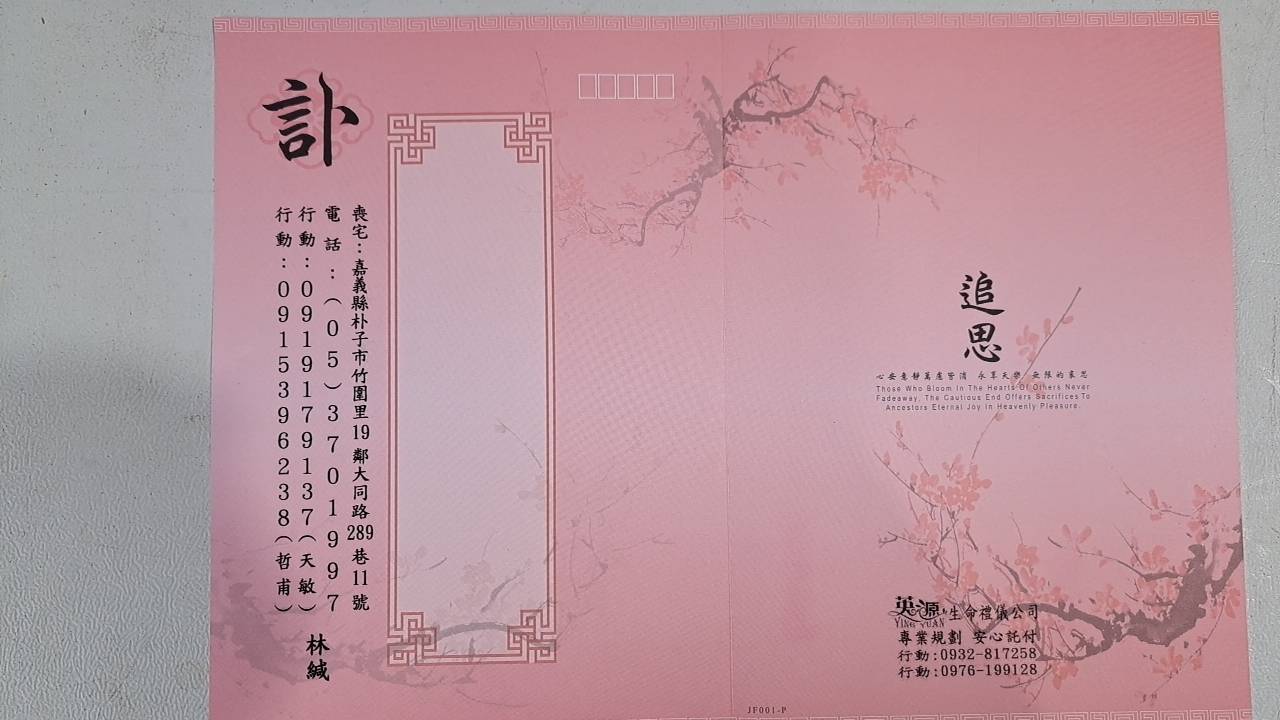 訃
喪宅：嘉義縣朴子市竹圍里19鄰大同路289巷11號
電話：（05）3701997
行動：0919179137（天敏）
行動：0915396238（哲甫）
林緘
追思
心安意靜萬慮皆消 永享天樂 無限的哀思
Those Who Bloom In The Hearts Of Others Never
Fadeaway, The Cautious End Offers Sacrifices To
Ancestors Eternal Joy In Heavenly Pleasure.
英源 生命禮儀公司
YING YUAN
專業規劃 安心託付
行動:0932-817258
行動:0976-199128
JF001-P